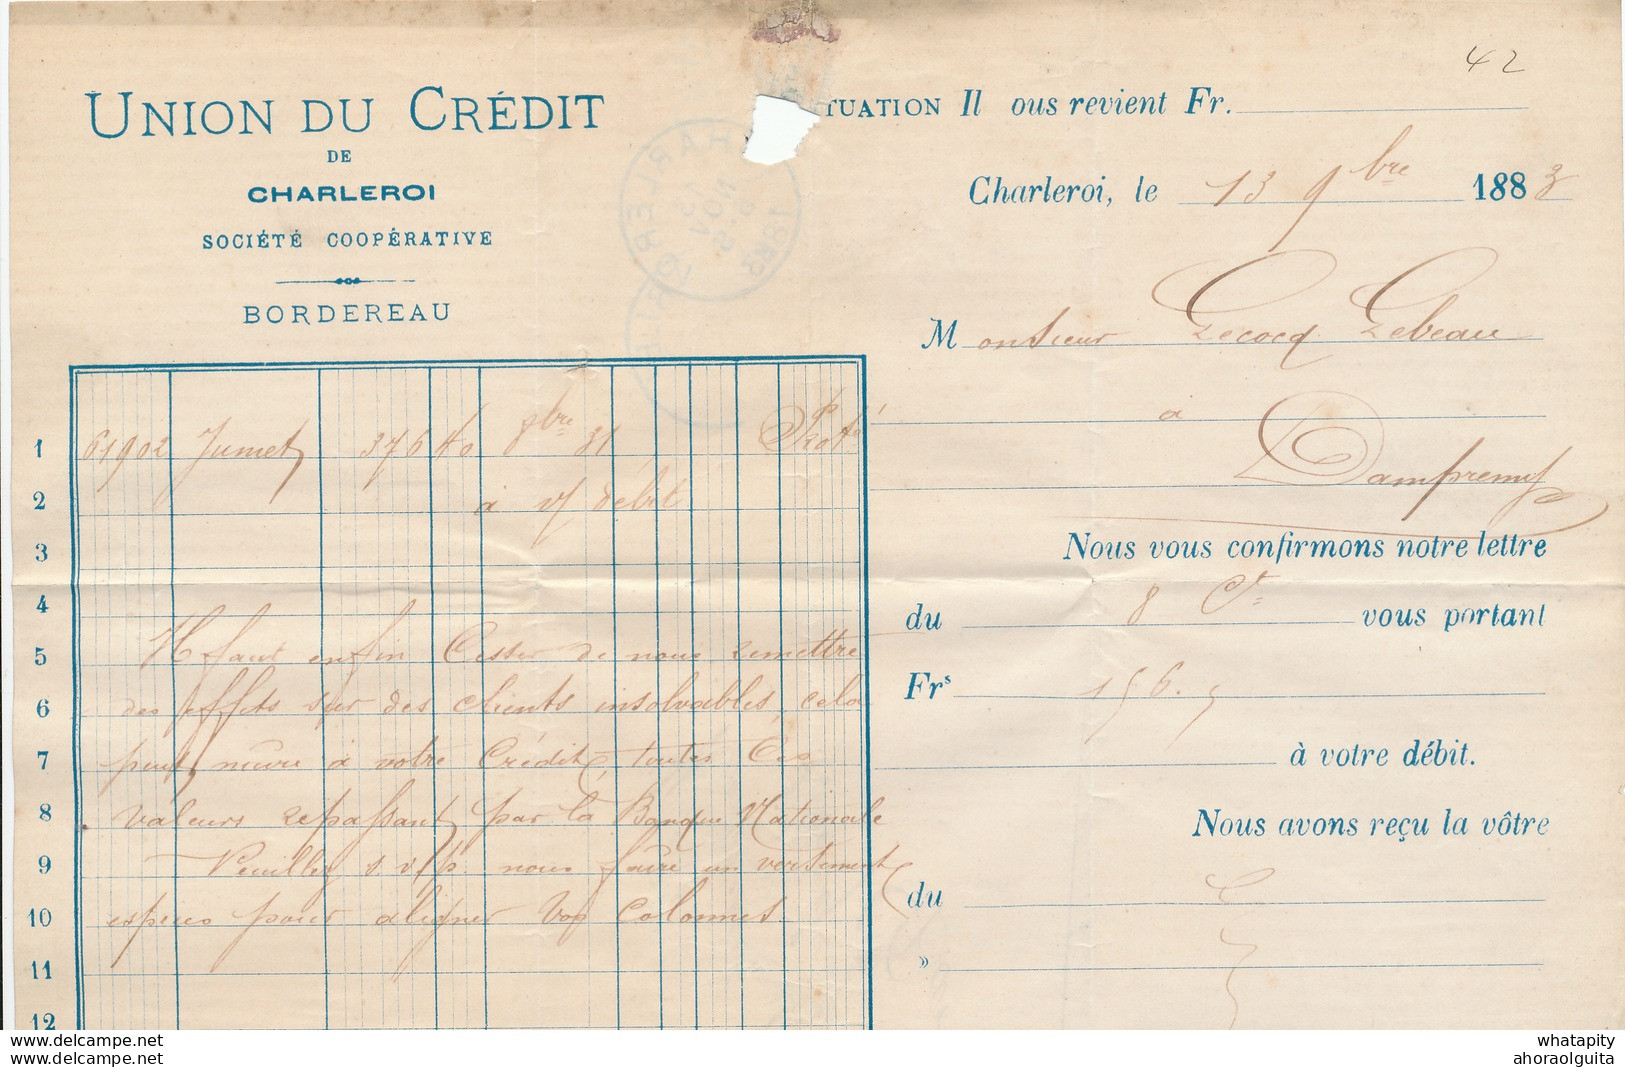 42
UNION DU CRÉDIT
DE
CHARLEROI
SOCIÉTÉ COOPÉRATIVE
BORDEREAU
TUATION Il ous revient Fr.
Charleroi, le 13 9bre 1883
Monsieur Lecocq Lebeau
à
Dampremy
Nous vous confirmons notre lettre
du 8 Ct vous portant
Frs 156.5
à votre débit.
Nous avons reçu la vôtre
du
»
1 61902 Jumet 376 40 8bre 31 Prot
2 à v/ débit
3
4
5 Il faut enfin cesser de nous remettre
6 des effets sur des clients insolvables, cela
7 peut nuire à votre crédit, toutes ces
8 valeurs repassant par la Banque Nationale
9 Veuillez s.v/p. nous faire un versement
10 espèces pour aligner vos colonnes.
11
12
CHARLEROI
1883
whatapity
ahoraolguita
whatapity
ahoraolguita